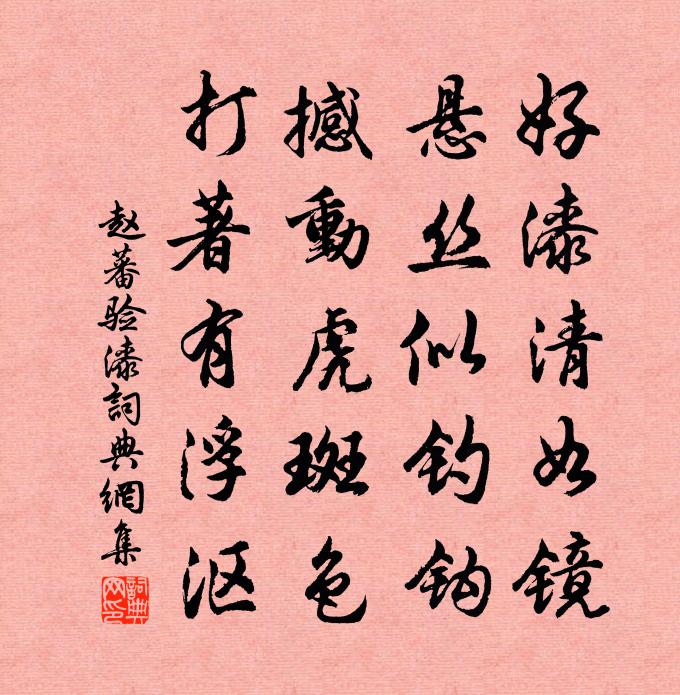 好漆清如镜
悬丝似钓钩
撼動虎斑色
打著有浮沤
赵蕃验漆詞典網集
詞典网印